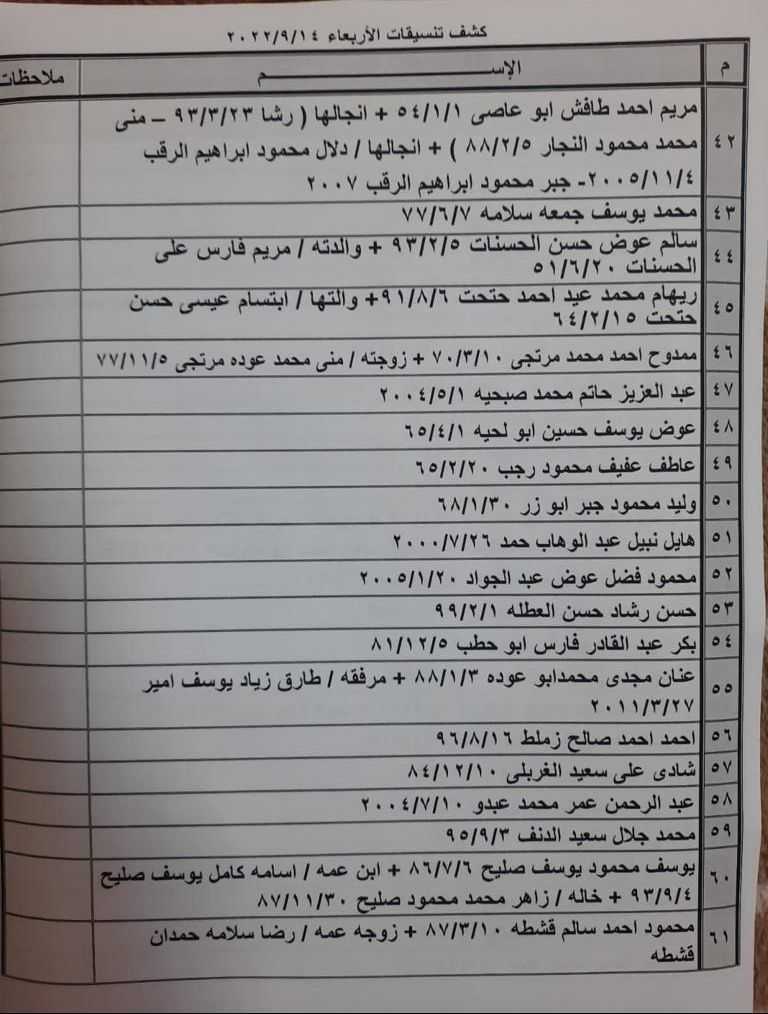 كشف تنسيقات الأربعاء ٢٠٢٢/٩/١٤
م الإســـــــــم ملاحظات
٤٢ مريم احمد طافش ابو عاصى ٥٤/١/١ + انجالها ( رشا ٩٣/٣/٢٣ – منى
محمد محمود النجار ٨٨/٢/٥ ) + انجالها / دلال محمود ابراهيم الرقب
٢٠٠٥/١١/٤- جبر محمود ابراهيم الرقب ٢٠٠٧
٤٣ محمد يوسف جمعه سلامه ٧٧/٦/٧
٤٤ سالم عوض حسن الحسنات ٩٣/٢/٥ + والدته / مريم فارس على
الحسنات ٥١/٦/٢٠
٤٥ ريهام محمد عيد احمد حتحت ٩١/٨/٦+ والتها / ابتسام عيسى حسن
حتحت ٦٤/٢/١٥
٤٦ ممدوح احمد محمد مرتجى ٧٠/٣/١٠ + زوجته / منى محمد عوده مرتجى ٧٧/١١/٥
٤٧ عبد العزيز حاتم محمد صبحيه ٢٠٠٤/٥/١
٤٨ عوض يوسف حسين ابو لحيه ٦٥/٤/١
٤٩ عاطف عفيف محمود رجب ٦٥/٢/٢٠
٥٠ وليد محمود جبر ابو زر ٦٨/١/٣٠
٥١ هايل نبيل عبد الوهاب حمد ٢٠٠٠/٧/٢٦
٥٢ محمود فضل عوض عبد الجواد ٢٠٠٥/١/٢٠
٥٣ حسن رشاد حسن العطله ٩٩/٢/١
٥٤ بكر عبد القادر فارس ابو حطب ٨١/١٢/٥
٥٥ عنان مجدى محمدابو عوده ٨٨/١/٣ + مرفقه / طارق زياد يوسف امير
٢٠١١/٣/٢٧
٥٦ احمد احمد صالح زملط ٩٦/٨/١٦
٥٧ شادى على سعيد الغربلى ٨٤/١٢/١٠
٥٨ عبد الرحمن عمر محمد عبدو ٢٠٠٤/٧/١٠
٥٩ محمد جلال سعيد الدنف ٩٥/٩/٣
٦٠ يوسف محمود يوسف صليح ٨٦/٧/٦ + ابن عمه / اسامه كامل يوسف صليح
٩٣/٩/٤ + خاله / زاهر محمد محمود صليح ٨٧/١١/٣٠
٦١ محمود احمد سالم قشطه ٨٧/٣/١٠ + زوجه عمه / رضا سلامه حمدان
قشطه